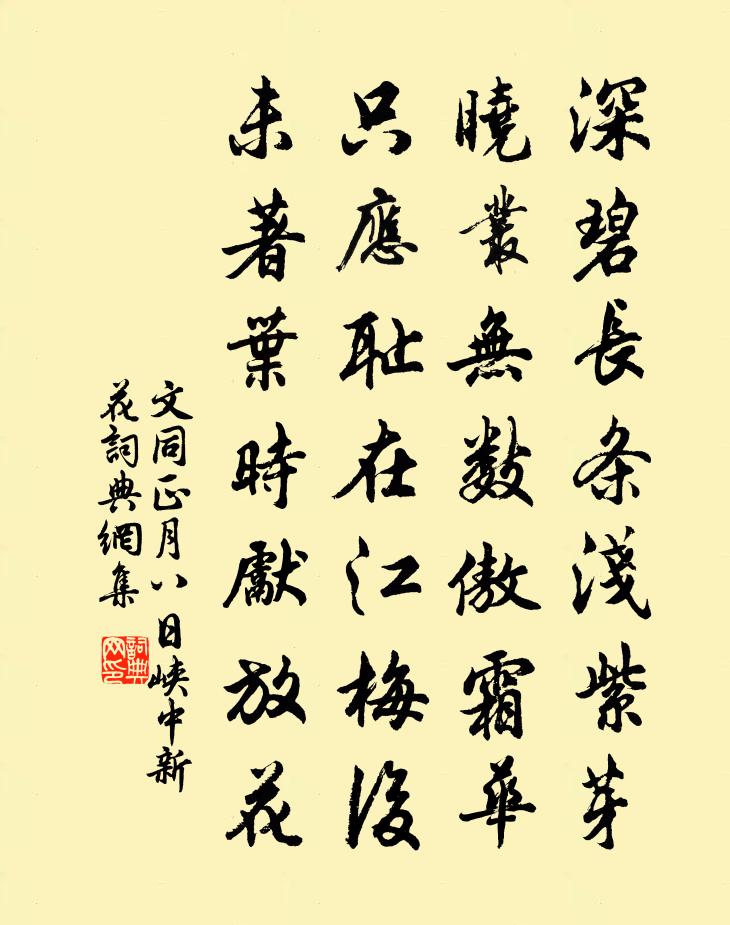 深碧長条淺紫芽
曉叢無數傲霜華
只應耻在江梅後
未著葉時獻放花
文同正月八日峽中新
花詞典網集
詞典網印